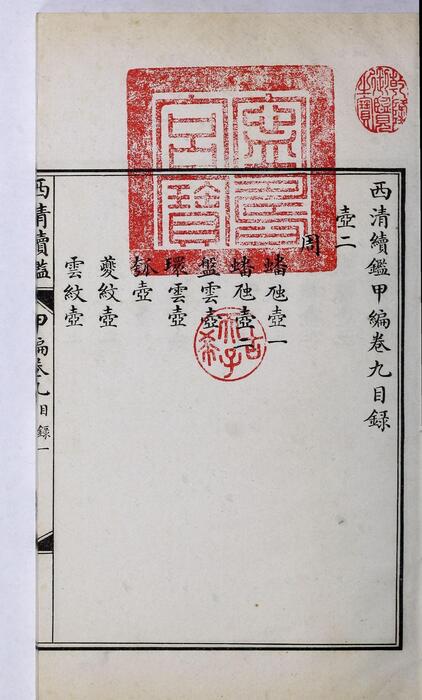 乾隆御覽之寶
寧壽宮寶
西清續鑑甲編卷九目録
壺二
周
蟠虺壺一
蟠虺壺二
盤雲壺
環雲壺
瓠壺
夔紋壺
雲紋壺
古希天子
西清續鑑
甲編卷九目録一